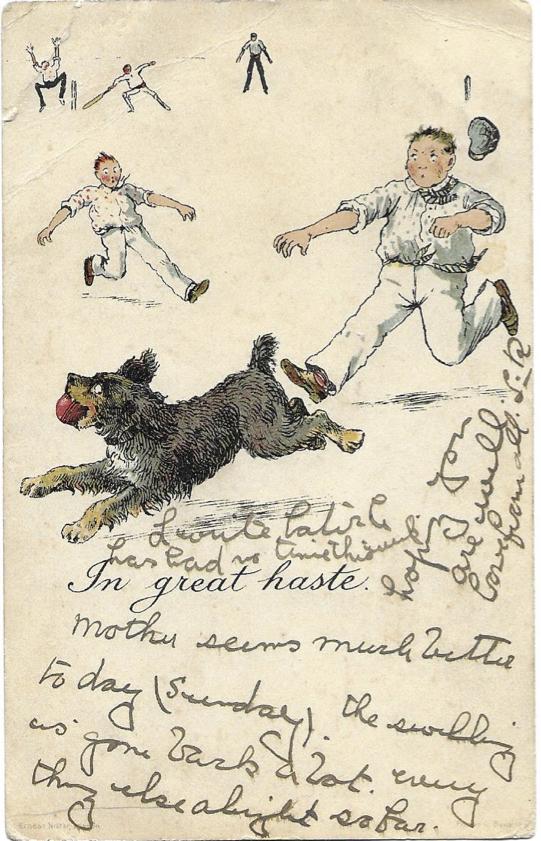 has had no time this week
In great haste.
Mother seems much better
to day (Sunday). the swelling
as gone back a lot. every
thing else alright so far.
hoping you
are well
love from all.
Ernest Nister